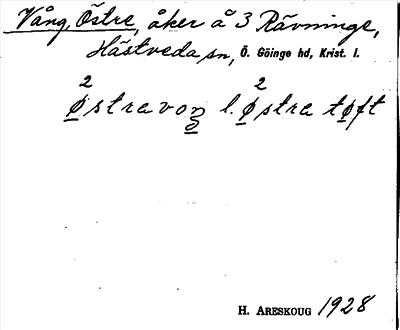 Vång, Östre, åker å 3 Rävninge,
Hästveda sn, Ö. Göinge hd, Krist. l.
2 2
østravoŋ l. østra tøft
H. ARESKOUG 1928